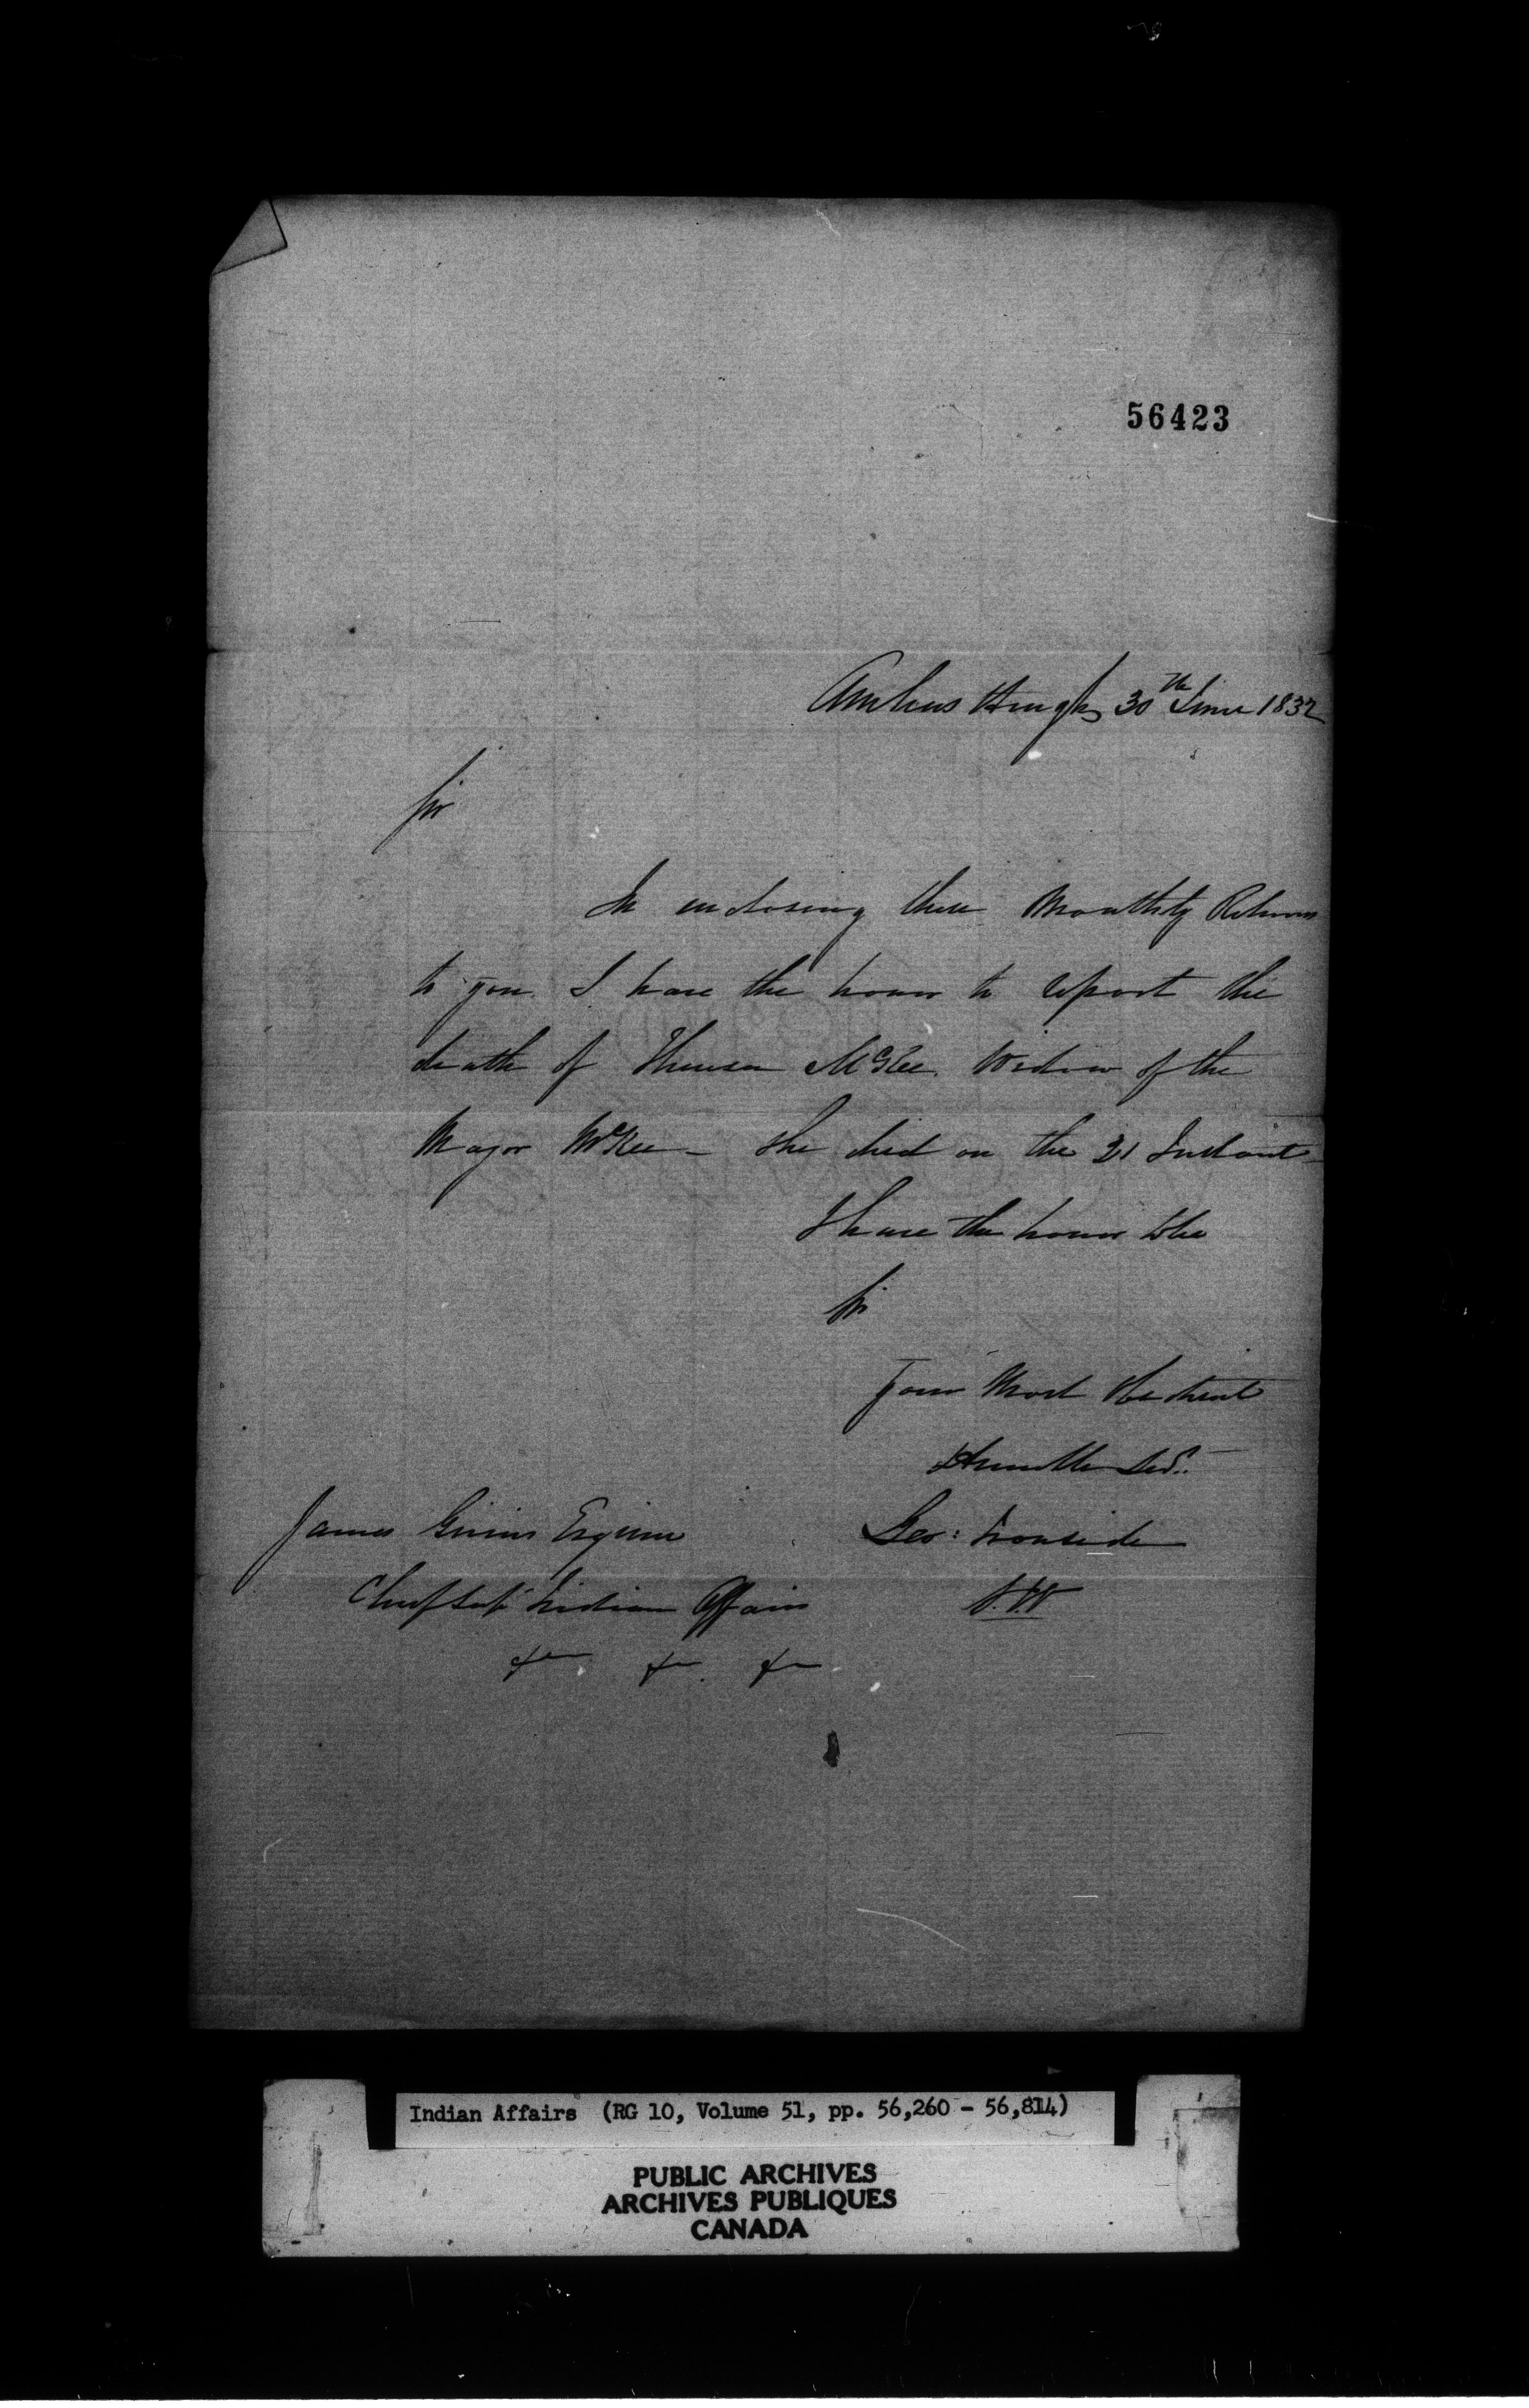 56423
Amherstburgh 30th June 1832
Sir
In enclosing these Monthly Returns
to you I have the honor to report the
death of Theresa McKee Widow of the
Major McKee - She died on the 21 Instant
I have the honor to be
Sir
Your Most Obedient
Humble Servt.
James Givins Esquire
Geo: Ironside
Chief Supt Indian Affairs
&c. &c. &c.
Indian Affairs (RG 10, Volume 51, pp. 56,260 - 56,814)
PUBLIC ARCHIVES
ARCHIVES PUBLIQUES
CANADA